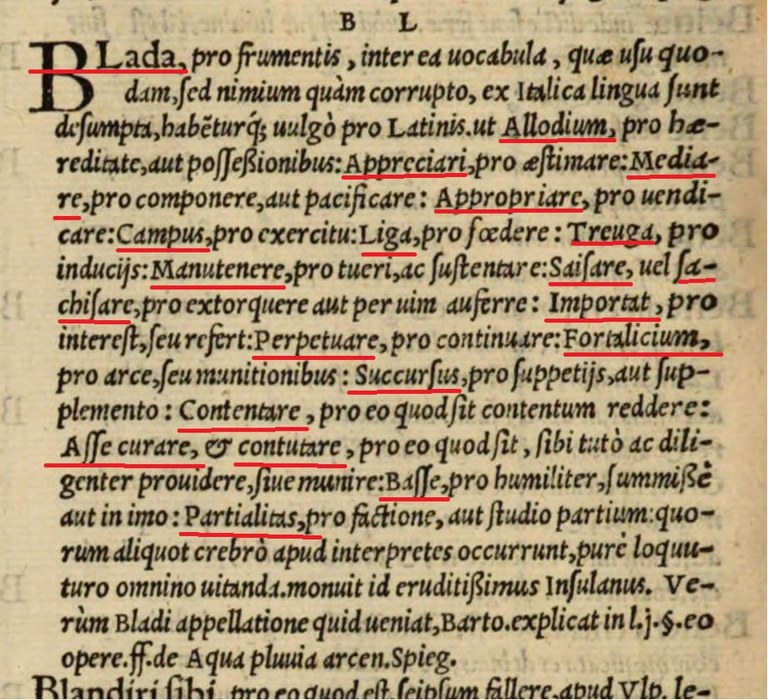 B L
BLada, pro frumentis, inter ea uocabula, quæ uſu quo-
dam, ſed nimium quàm corrupto, ex Italica lingua ſunt
deſumpta, habẽturq́; uulgò pro Latinis. ut Allodium, pro hæ-
reditate, aut poſſeßionibus: Appreciari, pro æſtimare: Media-
re, pro componere, aut pacificare: Appropriare, pro uendi-
care: Campus, pro exercitu: Liga, pro fœdere: Treuga, pro
inducijs: Manutenere, pro tueri, ac ſuſtentare: Saiſare, uel ſa-
chiſare, pro extorquere aut per uim auferre: Importat, pro
intereſt, ſeu refert: Perpetuare, pro continuare: Fortalicium,
pro arce, ſeu munitionibus: Succurſus, pro ſuppetijs, aut ſup-
plemento: Contentare, pro eo quod ſit contentum reddere:
Aſſe curare, & contutare, pro eo quod ſit, ſibi tutò ac dili-
genter prouidere, ſiue munire: Baſſe, pro humiliter, ſummißè
aut in imo: Partialitas, pro factione, aut ſtudio partium: quo-
rum aliquot crebrò apud interpretes occurrunt, purè loquu-
turo omnino uitanda. monuit id eruditißimus Inſulanus. Ve-
rùm Bladi appellatione quid ueniat, Barto. explicat in l. j. §. eo
opere. ff. de Aqua pluuia arcen. Spieg.
Blandiri ſibi, pro eo quod eſt, ſeipſum fallere, apud Vlp. le-